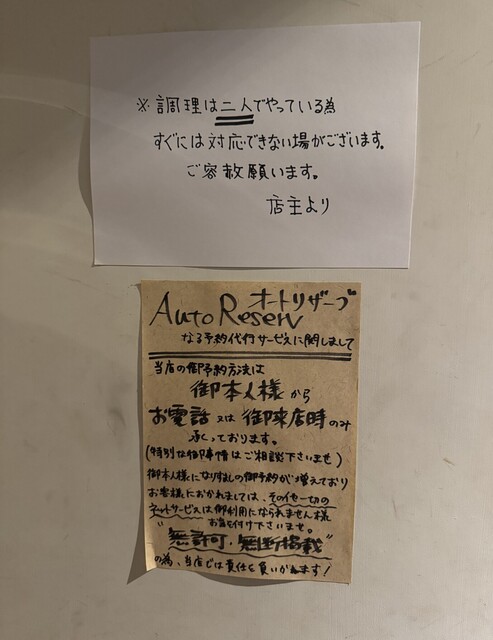 ※調理は二人でやっている為
すぐには対応できない場がございます。
ご容赦願います。
店主より
オートリザーブ
Auto Reserv
なる予約代行サービスに関しまして
当店の御予約方法は
御本人様から
お電話又は御来店時のみ
承くっております。
(特別な御事情はご相談下さいませ)
御本人様になりすましの御予約が増えており
お客様におかれましては、その他一切の
ネットサービスは御利用になられません様
お気を付け下さいませ。
"無許可・無断掲載"
の為、当店では責任を負いかねます!